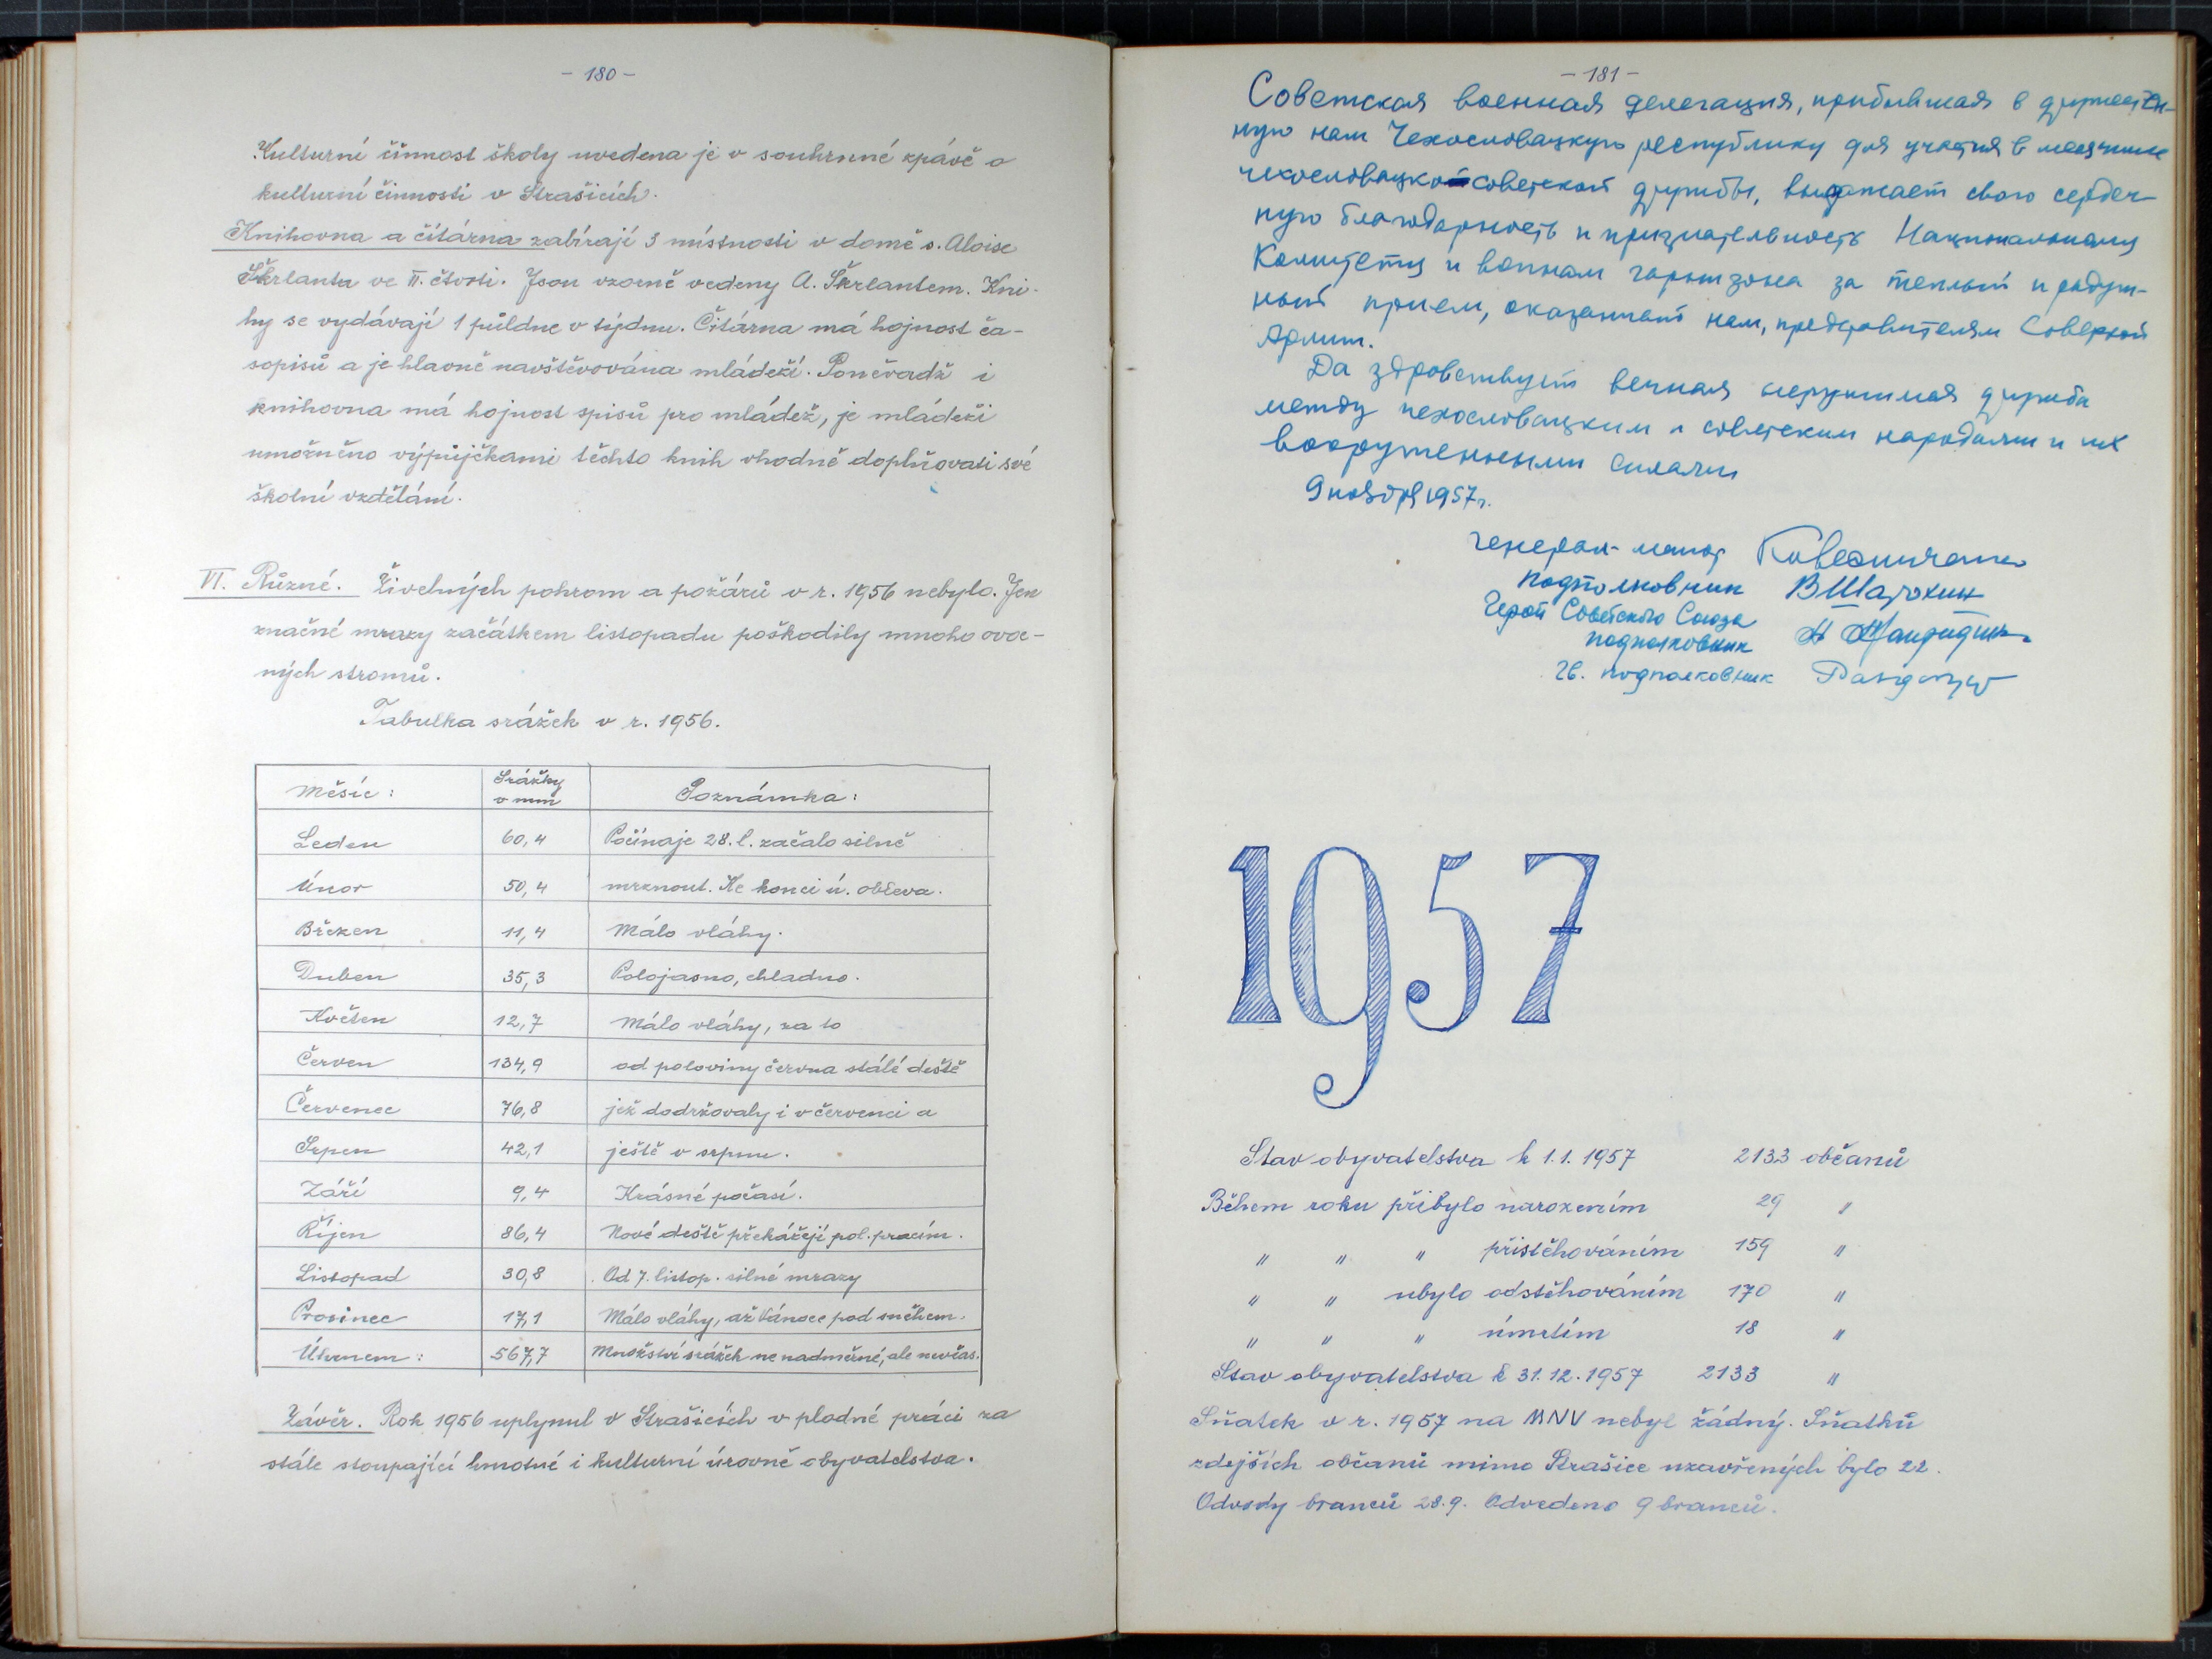 - 180 -
Kulturní činnost školy uvedena je v souhrnné zpávě o
kulturní činnosti v Strašicích.
Knihovna a čítárna zabírají 3 místnosti v domě s. Aloise
Škrlanta ve II. čtvrti. Jsou vzorně vedeny A. Škrlantem. Kni-
hy se vydávají 1 půldne v týdnu. Čítárna má hojnost ča-
sopisů a je hlavně navštěvována mládeží. Poněvadž i
knihovna má hojnost spisů pro mládež, je mládeži
umožněno výpůjčkami těchto knih vhodně doplňovati své
školní vzdělání.
VI. Různé. Živelných pohrom a požárů v r. 1956 nebylo. Jen
značné mrazy začátkem listopadu poškodily mnoho ovoc-
ných stromů.
Tabulka srážek v r. 1956.
Měsíc: Srážky v mm Poznámka:
Leden 60,4 Počínaje 28. l. začalo silně
Únor 50,4 mrznout. Ke konci ú. obleva.
Březen 11,4 Málo vláhy.
Duben 35,3 Polojasno, chladno.
Květen 12,7 Málo vláhy, za to
Červen 134,9 od poloviny června stálé deště
Červenec 76,8 jež dodržovaly i v červenci a
Srpen 42,1 ještě v srpnu.
Září 9,4 Krásné počasí.
Říjen 86,4 Nové deště překážejí pol. pracím.
Listopad 30,8 Od 7. listop. silné mrazy
Prosinec 17,1 Málo vláhy, až Vánoce pod sněhem.
Úhrnem: 567,7 Množství srážek ne nadměrné, ale nevčas.
Závěr. Rok 1956 uplynul v Strašicích v plodné práci za
stále stoupající hmotné i kulturní úrovně obyvatelstva.
- 181 -
Советская военная делегация, прибывшая в дружествен-
ную нам Чехословацкую республику для участия в месячнике
чехословацкой советской дружбы, выражает свою сердеч-
ную благодарность и признательность Национальному
Комитету и воинам гарнизона за теплый и радуш-
ный прием, оказанный нам, представителям Советской
Армии.
Да здравствует вечная нерушимая дружба
между чехословацким и советским народами и их
вооруженными силами
9 ноября 1957 г.
генерал-майор
подполковник В Шатохин
Герой Советского Союза
подполковник
гв. подполковник
1957
Stav obyvatelstva k 1.1. 1957 2133 občanů
Během roku přibylo narozením 29 "
" " " přistěhováním 159 "
" " ubylo odstěhováním 170 "
" " " úmrtím 18 "
Stav obyvatelstva k 31. 12. 1957 2133 "
Sňatek v r. 1957 na MNV nebyl žádný. Sňatků
zdejších občanů mimo Strašice uzavřených bylo 22.
Odvody branců 28. 9. Odvedeno 9 branců.